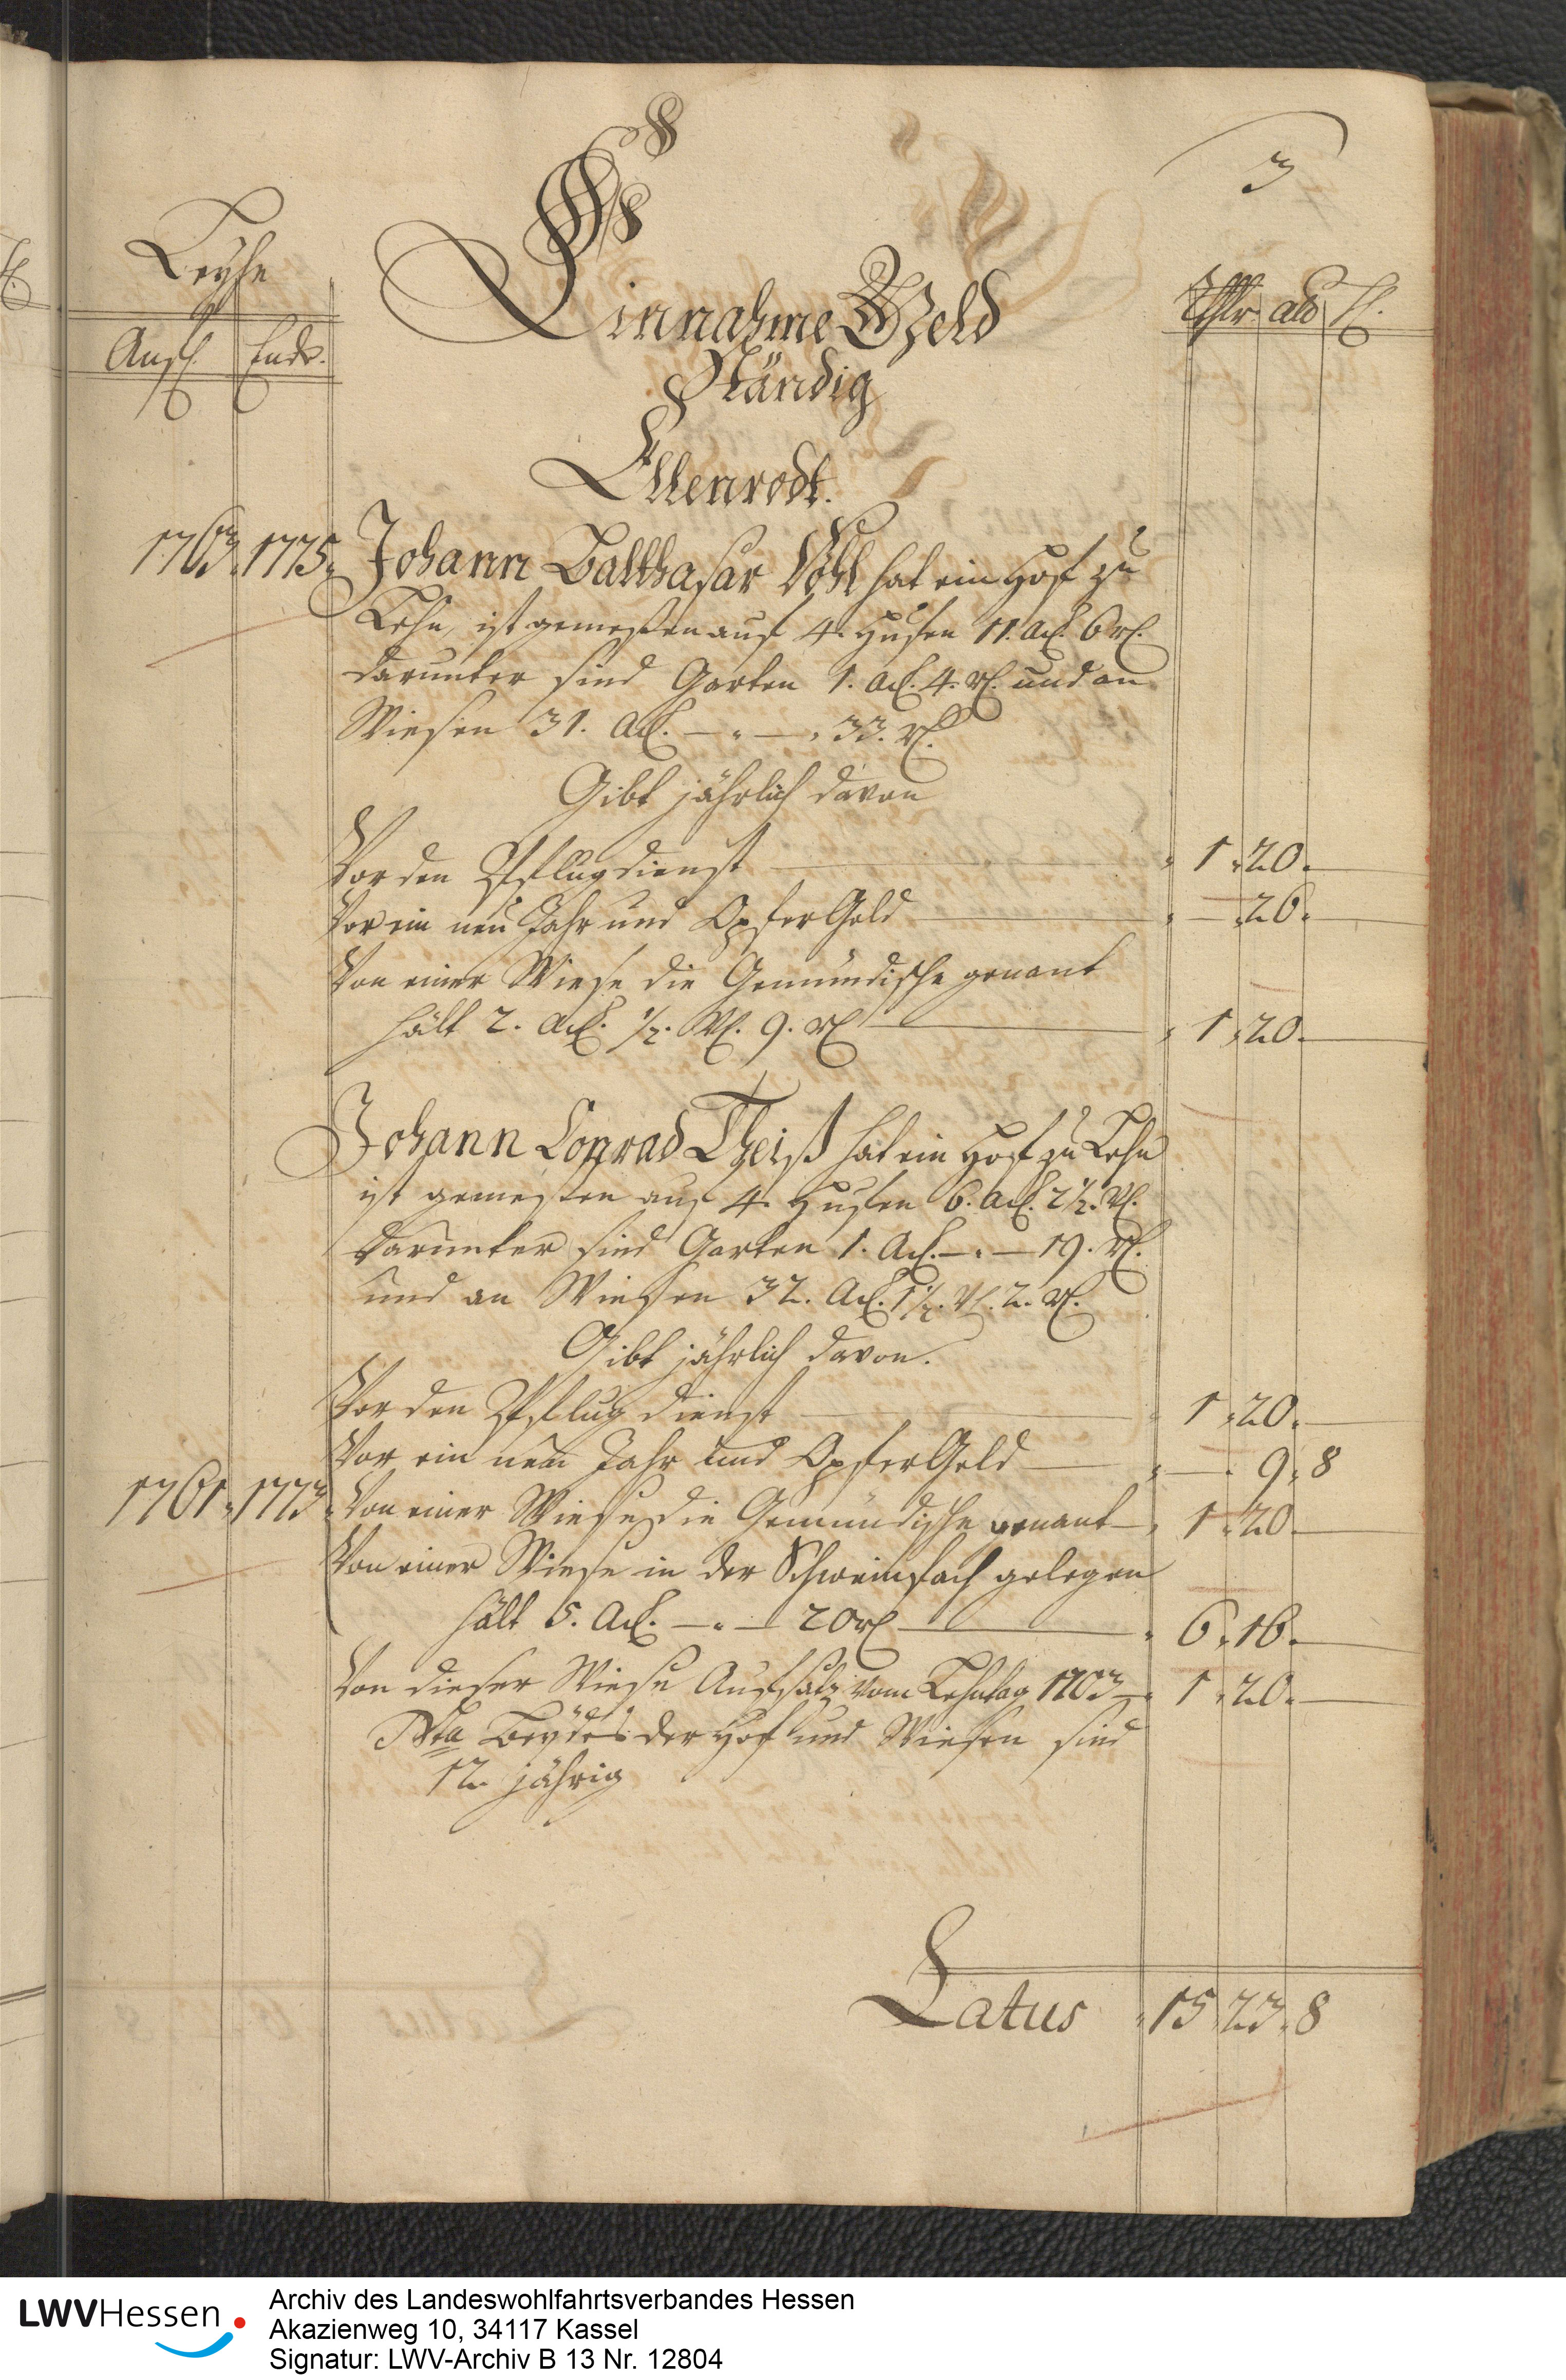 3
Leyhe
Anf. Ende.
Einnahme Geld
Rthlr alb hl.
Ständig
Ellenrodt.
1763. 1775. Johann Balthasar Völl hat ein Hof zu
Lehn, ist gemeßen auf 4. Hufen 11. Ack. 6 rt.
darunter sind Garten 1. Ack. 4. rt. und an
Wiesen 31. Ack. — . — . 33. rt.
Gibt jährlich davon
Vor den Pflugdienst 1. 20.
Vor ein neu Jahr und Opfer Geld — . 26.
Von einer Wiese die Gemündische genant
hält 2. Ack. 1/2. Vt. 9. rt 1. 20.
Johann Conrad Theiß hat ein Hof zu Lehn
ist gemeßen auf 4. Hufen 6. Ack. 2 1/2. Vt.
darunter sind Garten 1. Ack. — . — 19. rt.
und an Wiesen 32. Ack. 1 1/2. Vt. 2. rt.
Gibt jährlich davon.
Vor den Pflug dienst 1. 20.
Vor ein neu Jahr und Opfer Geld — . 9. 8
1761. 1773. Von einer Wiese die Gemündische genant 1. 20.
Von einer Wiese in der Schweinfach gelegen
hält 5. Ack. — . — 20 rt 6. 16.
Von dieser Wiese Aufsatz vom Lehntag 1703 1. 20.
Nta Beydes der Hof und Wiesen sind
12 jährig
Latus 15. 23. 8
LWVHessen
Archiv des Landeswohlfahrtsverbandes Hessen
Akazienweg 10, 34117 Kassel
Signatur: LWV-Archiv B 13 Nr. 12804